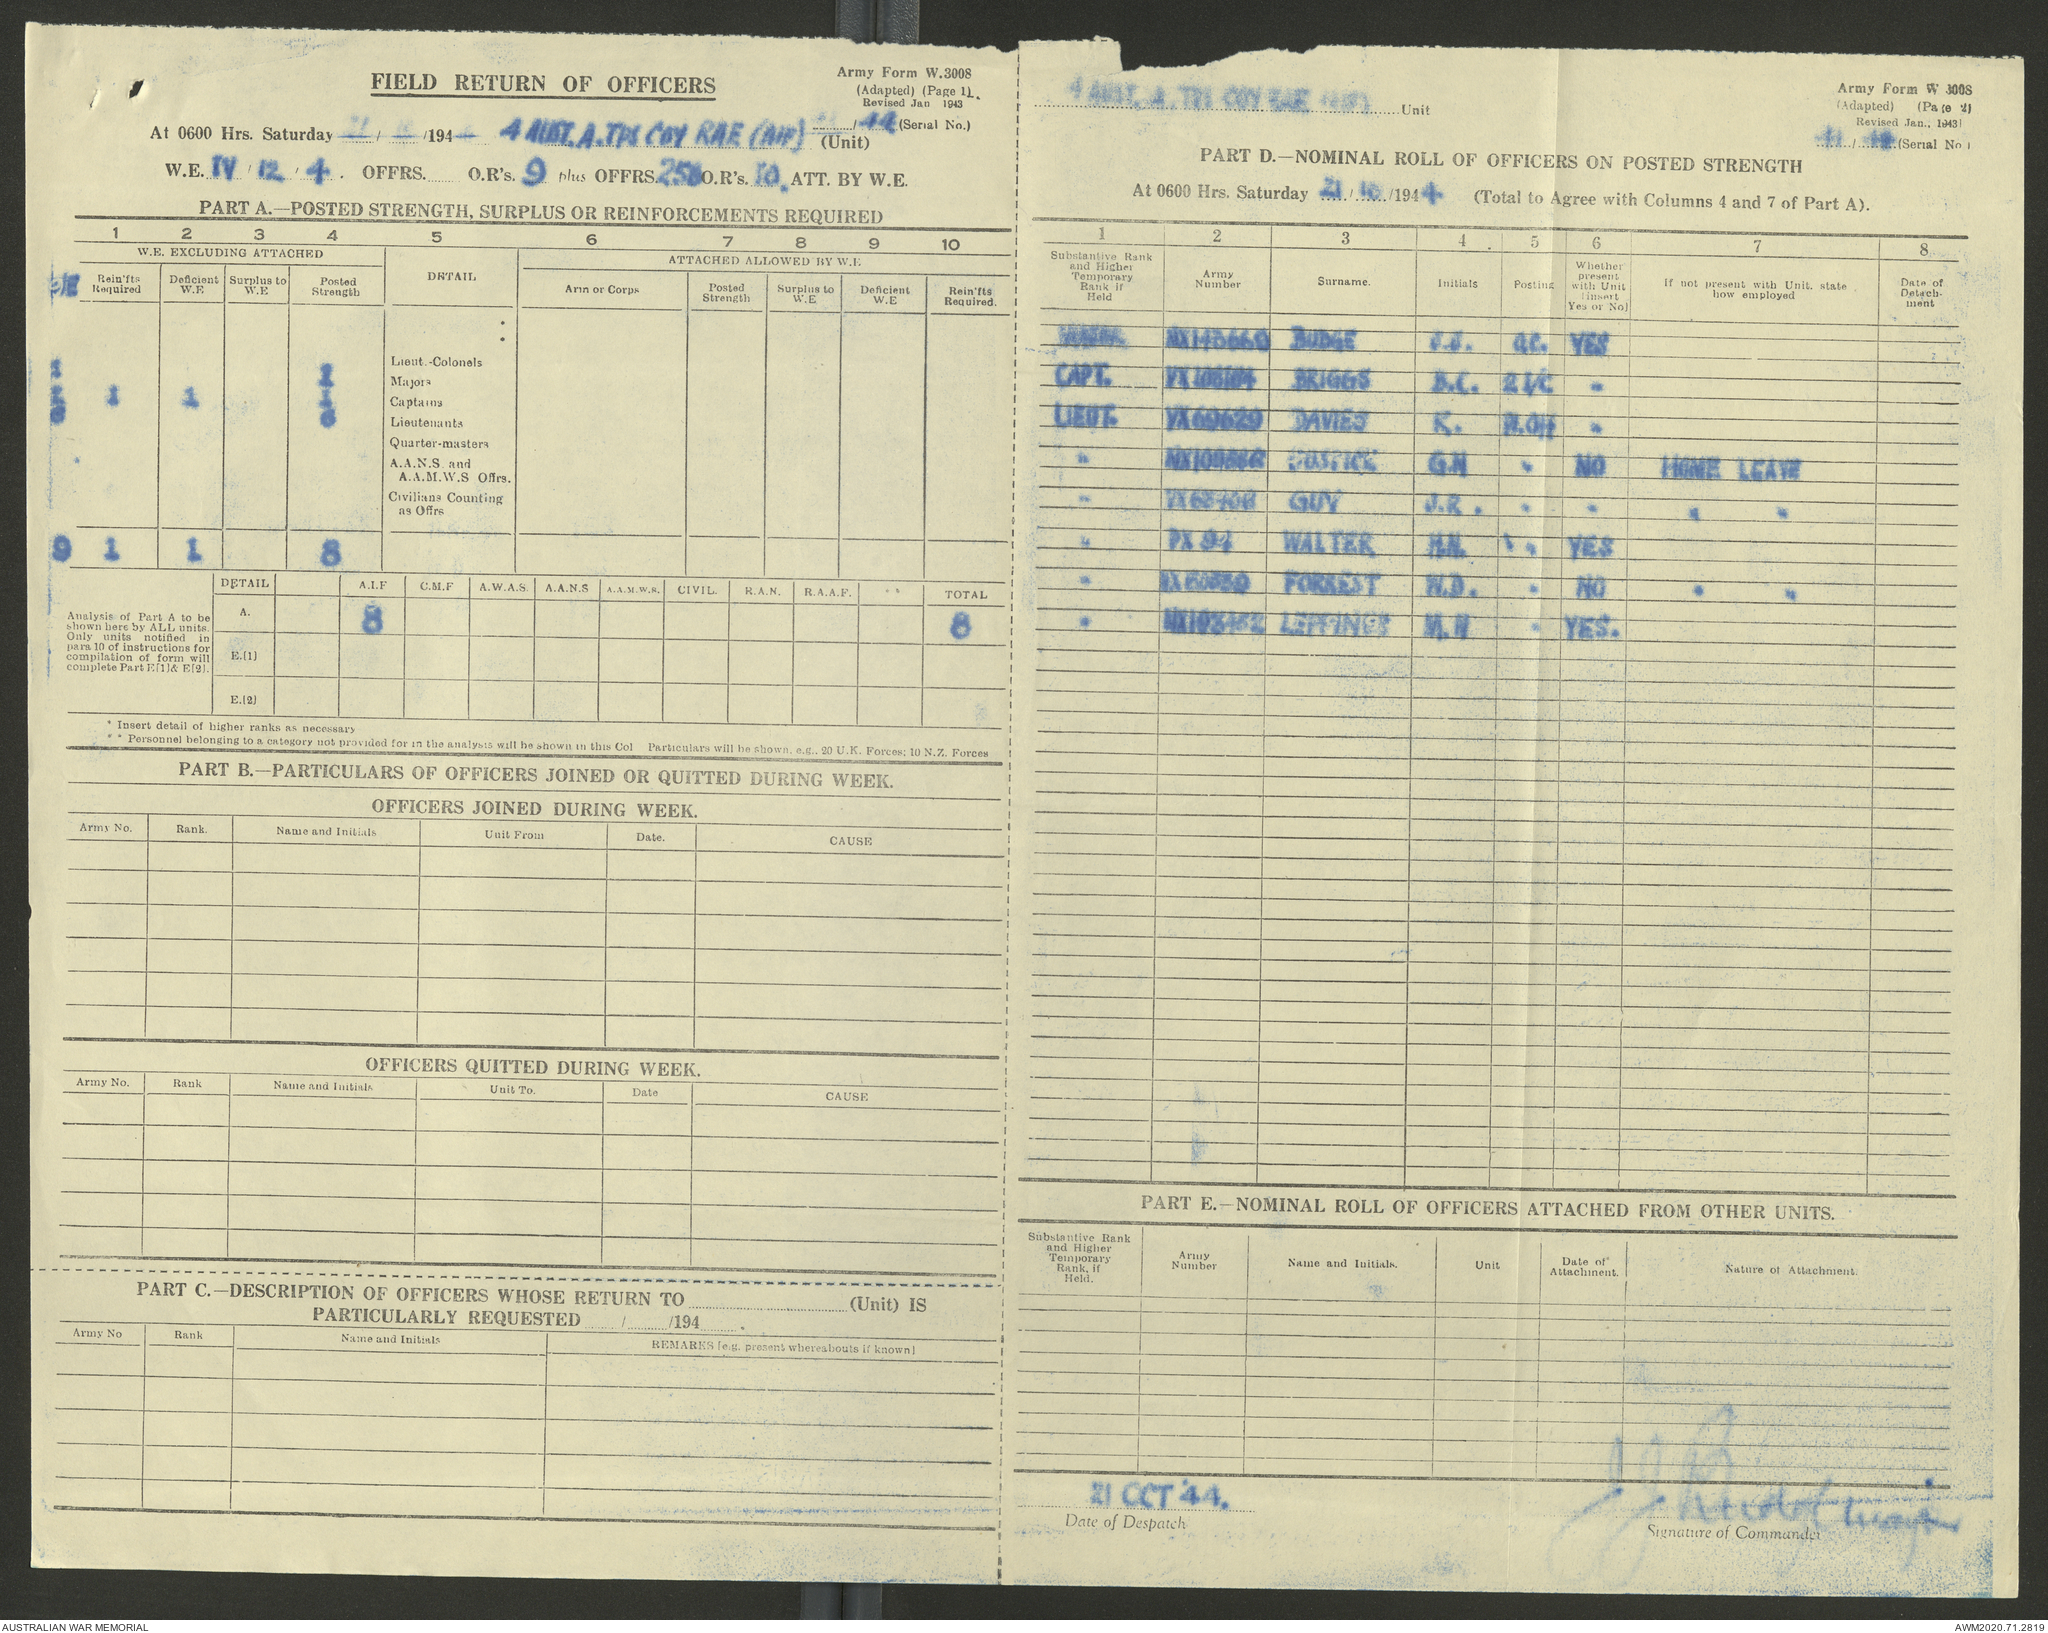 FIELD RETURN OF OFFICERS
Army Form W.3008
(Adapted) (Page 1).
Revised Jan 1943
At 0600 Hrs. Saturday 21/10/194 4 AUST. A. TPS COY RAE (AIF) (Unit) /44 (Serial No.)
W.E. IV / 12 / 4. OFFRS. O.R's. 9 plus OFFRS. 258 O.R's. 10. ATT. BY W.E.
PART A.—POSTED STRENGTH, SURPLUS OR REINFORCEMENTS REQUIRED
1 2 3 4 5 6 7 8 9 10
W.E. EXCLUDING ATTACHED
DETAIL
ATTACHED ALLOWED BY W.E
Rein'fts Required
Deficient W.E
Surplus to W.E
Posted Strength
Arm or Corps
Posted Strength
Surplus to W.E
Deficient W.E
Rein'fts Required.
Lieut.-Colonels
1 1 Majors
2 1 1 1 Captains
6 6 Lieutenants
Quarter-masters
A.A.N.S. and
A.A.M.W.S Offrs.
Civilians Counting
as Offrs
9 1 1 8
DETAIL A.I.F C.M.F A.W.A.S. A.A.N.S A.A.M.W.S. CIVIL. R.A.N. R.A.A.F. * * TOTAL
Analysis of Part A to be
shown here by ALL units.
Only units notified in
para 10 of instructions for
compilation of form will
complete Part E[1] & E[2].
A. 8 8
E.[1]
E.[2]
* Insert detail of higher ranks as necessary
* * Personnel belonging to a category not provided for in the analysis will be shown in this Col Particulars will be shown, e.g., 20 U.K. Forces; 10 N.Z. Forces
PART B.—PARTICULARS OF OFFICERS JOINED OR QUITTED DURING WEEK.
OFFICERS JOINED DURING WEEK.
Army No. Rank. Name and Initials Unit From Date. CAUSE
OFFICERS QUITTED DURING WEEK.
Army No. Rank Name and Initials Unit To. Date CAUSE
PART C.—DESCRIPTION OF OFFICERS WHOSE RETURN TO (Unit) IS
PARTICULARLY REQUESTED / /194 .
Army No Rank Name and Initials REMARKS [e.g. present whereabouts if known]
4 AUST. A. TPS COY RAE (AIF) Unit
Army Form W 3008
(Adapted) (Page 2)
Revised Jan., 1943
/ (Serial No.)
PART D.—NOMINAL ROLL OF OFFICERS ON POSTED STRENGTH
At 0600 Hrs. Saturday 21/10/1944 (Total to Agree with Columns 4 and 7 of Part A).
1 2 3 4 5 6 7 8
Substantive Rank and Higher Temporary Rank if Held
Army Number
Surname.
Initials
Posting
Whether present with Unit [insert Yes or No]
If not present with Unit. state how employed
Date of Detachment
BUDGE J.J. O.C. YES
CAPT. BRIGGS D.C. 2 I/C "
LIEUT. VX69629 DAVIES K. "
" G.N " NO HOME LEAVE
" GUY J.R. " " " "
" PX 94 WALTER H.N. " YES
" FORREST N.D. " NO " "
" M.N " YES.
PART E.—NOMINAL ROLL OF OFFICERS ATTACHED FROM OTHER UNITS.
Substantive Rank and Higher Temporary Rank, if Held.
Army Number
Name and Initials.
Unit
Date of Attachment.
Nature of Attachment.
21 OCT 44.
Date of Despatch
Signature of Commander
AUSTRALIAN WAR MEMORIAL
AWM2020.71.2819